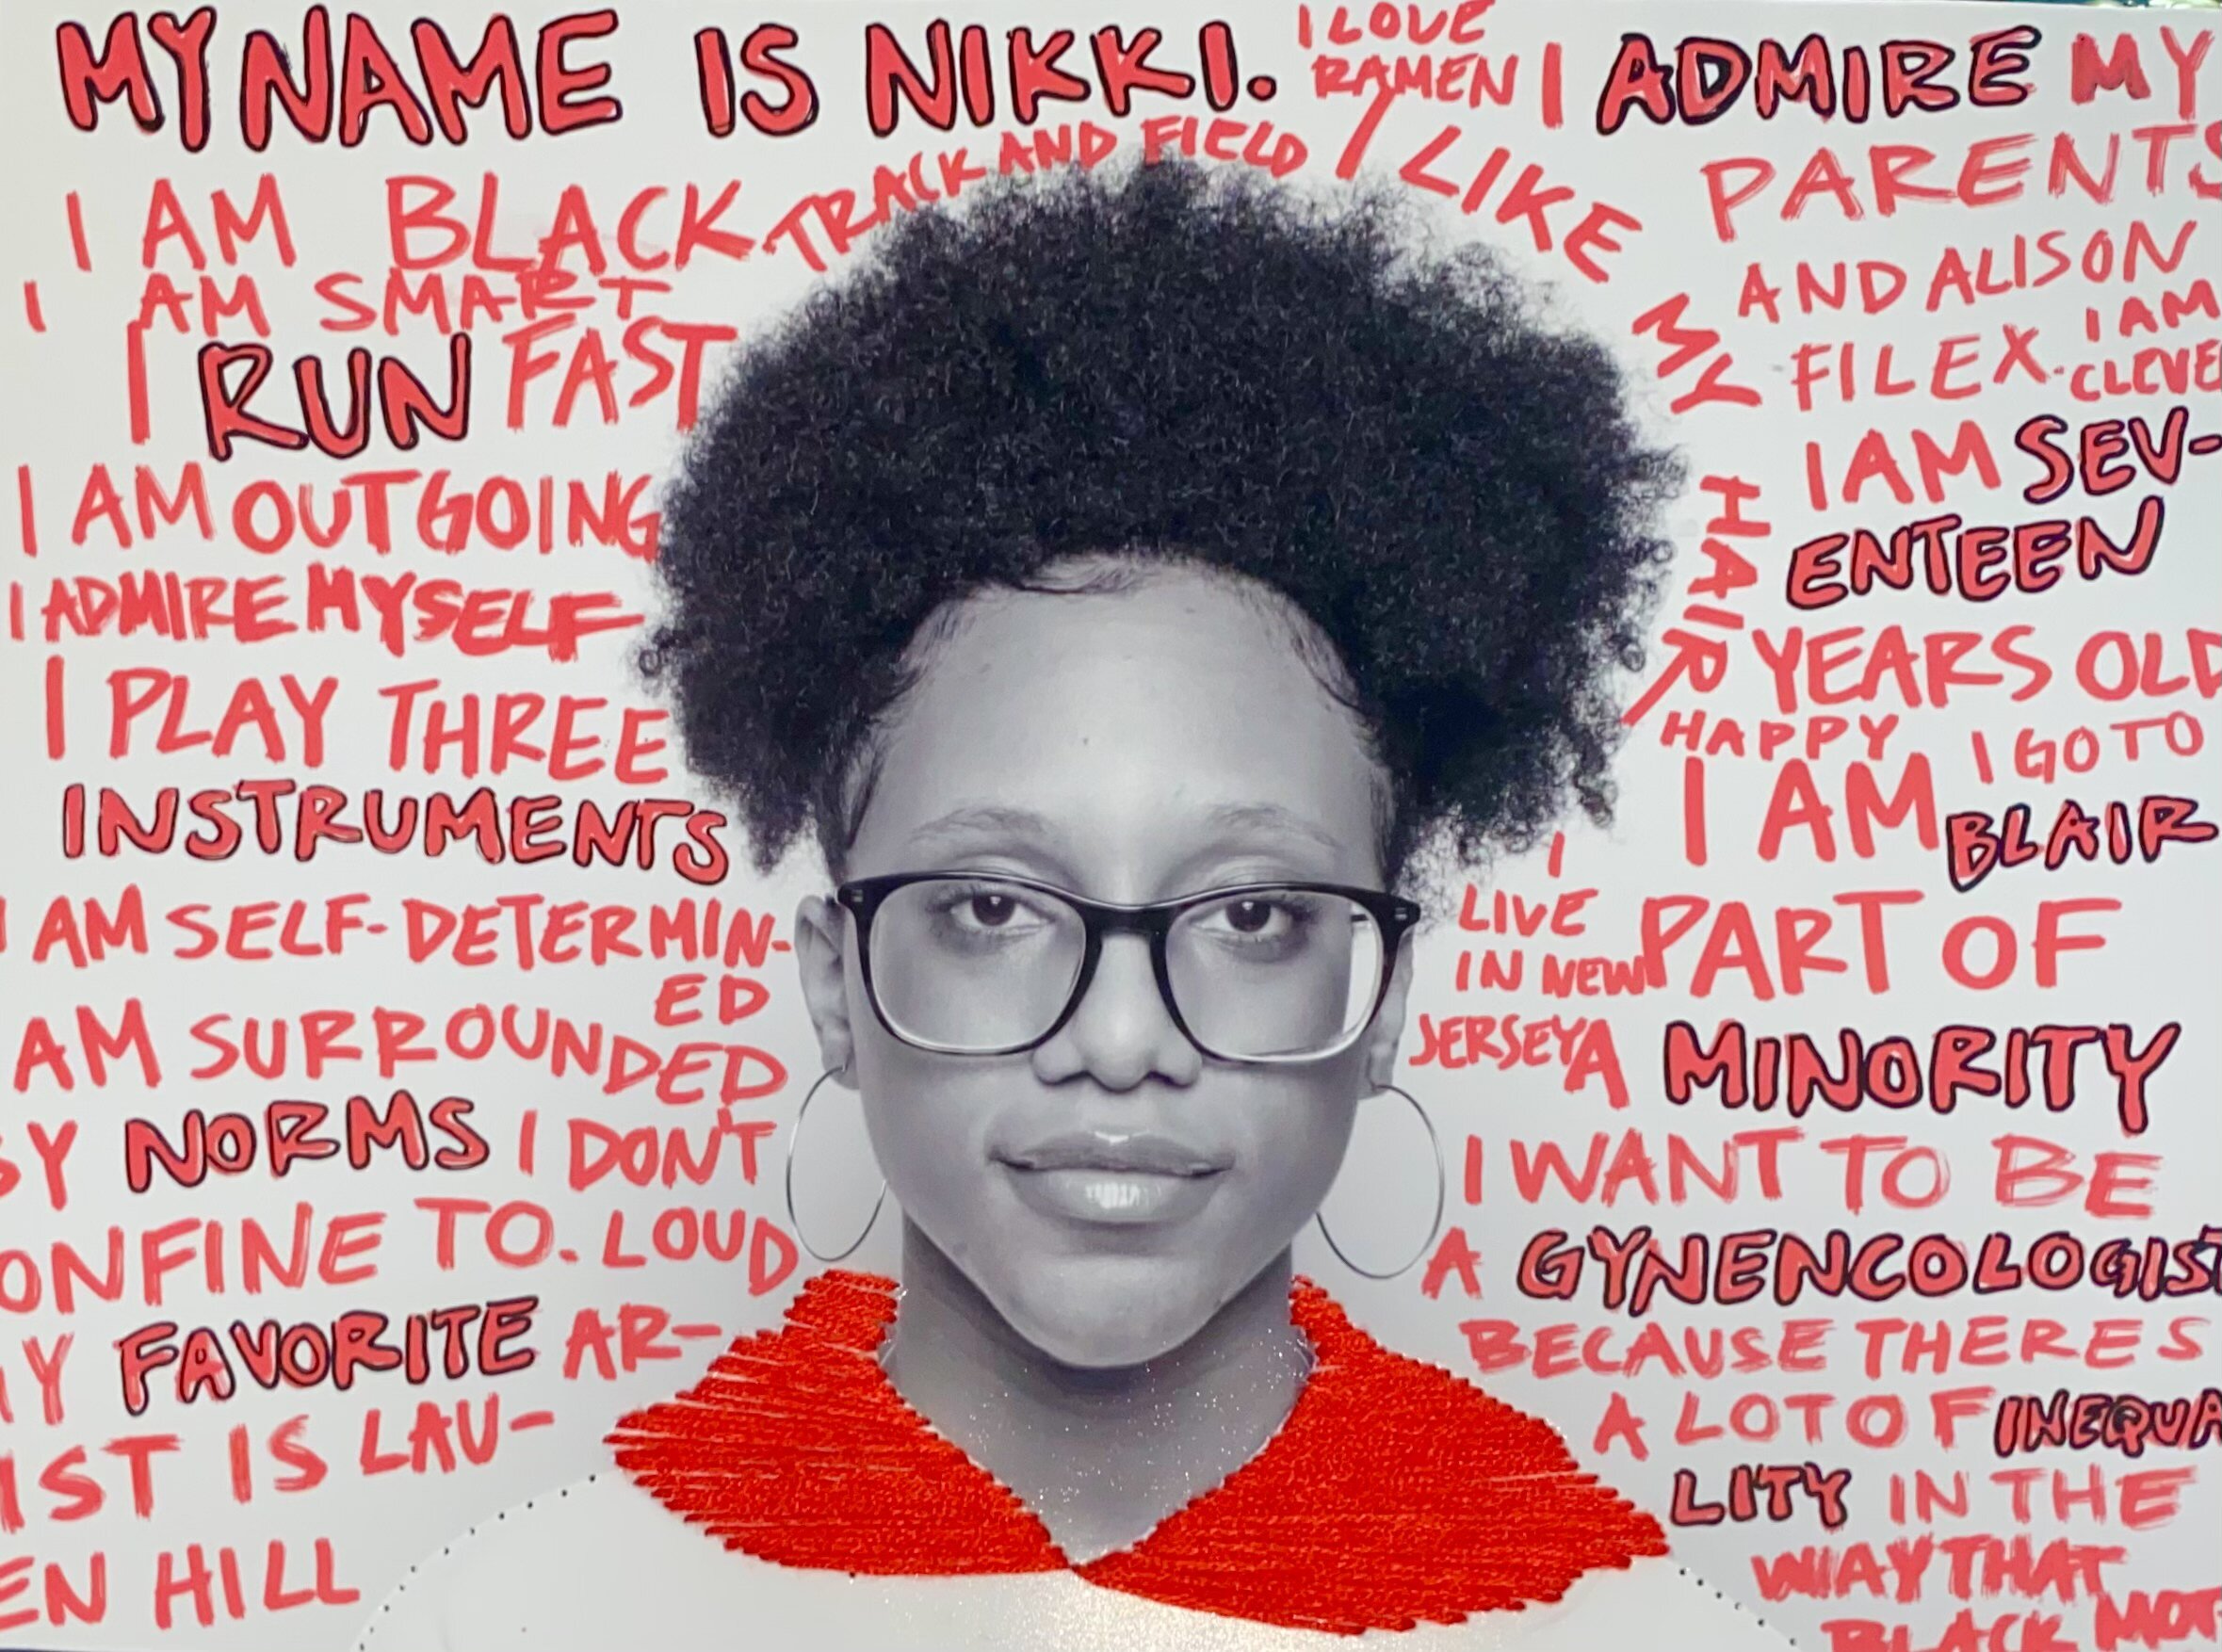 MY NAME IS NIKKI.
I AM BLACK
I AM SMART
I RUN FAST
I AM OUTGOING
I ADMIRE MYSELF
I PLAY THREE
INSTRUMENTS
I AM SELF-DETERMIN-
ED
AM SURROUNDED
BY NORMS I DON'T
ONFINE TO. LOUD
MY FAVORITE AR-
IST IS LAU-
EN HILL
TRACK AND FIELD
I LOVE
RAMEN
I LIKE MY HAIR
I ADMIRE MY
PARENTS
AND ALISON
FILEX. I AM
CLEVE
I AM SEV-
ENTEEN
YEARS OLD
HAPPY
I GO TO
BLAIR
I
LIVE
IN NEW
JERSEY
I AM
PART OF
A MINORITY
I WANT TO BE
A GYNENCOLOGIST
BECAUSE THERES
A LOT OF INEQUA
LITY IN THE
WAY THAT
BLACK MOT